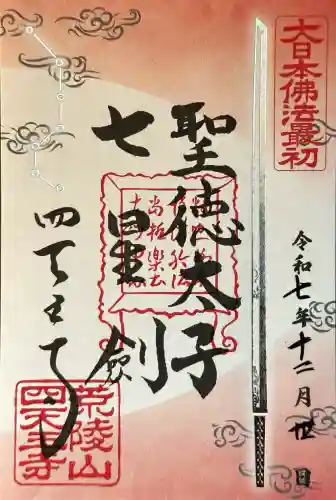 大日本佛法最初
令和七年十二月卅日
聖徳太子
七星剣
四天王寺
荒陵山
四天王寺